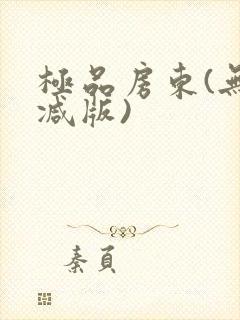 極品房東(無
減版)
秦頁